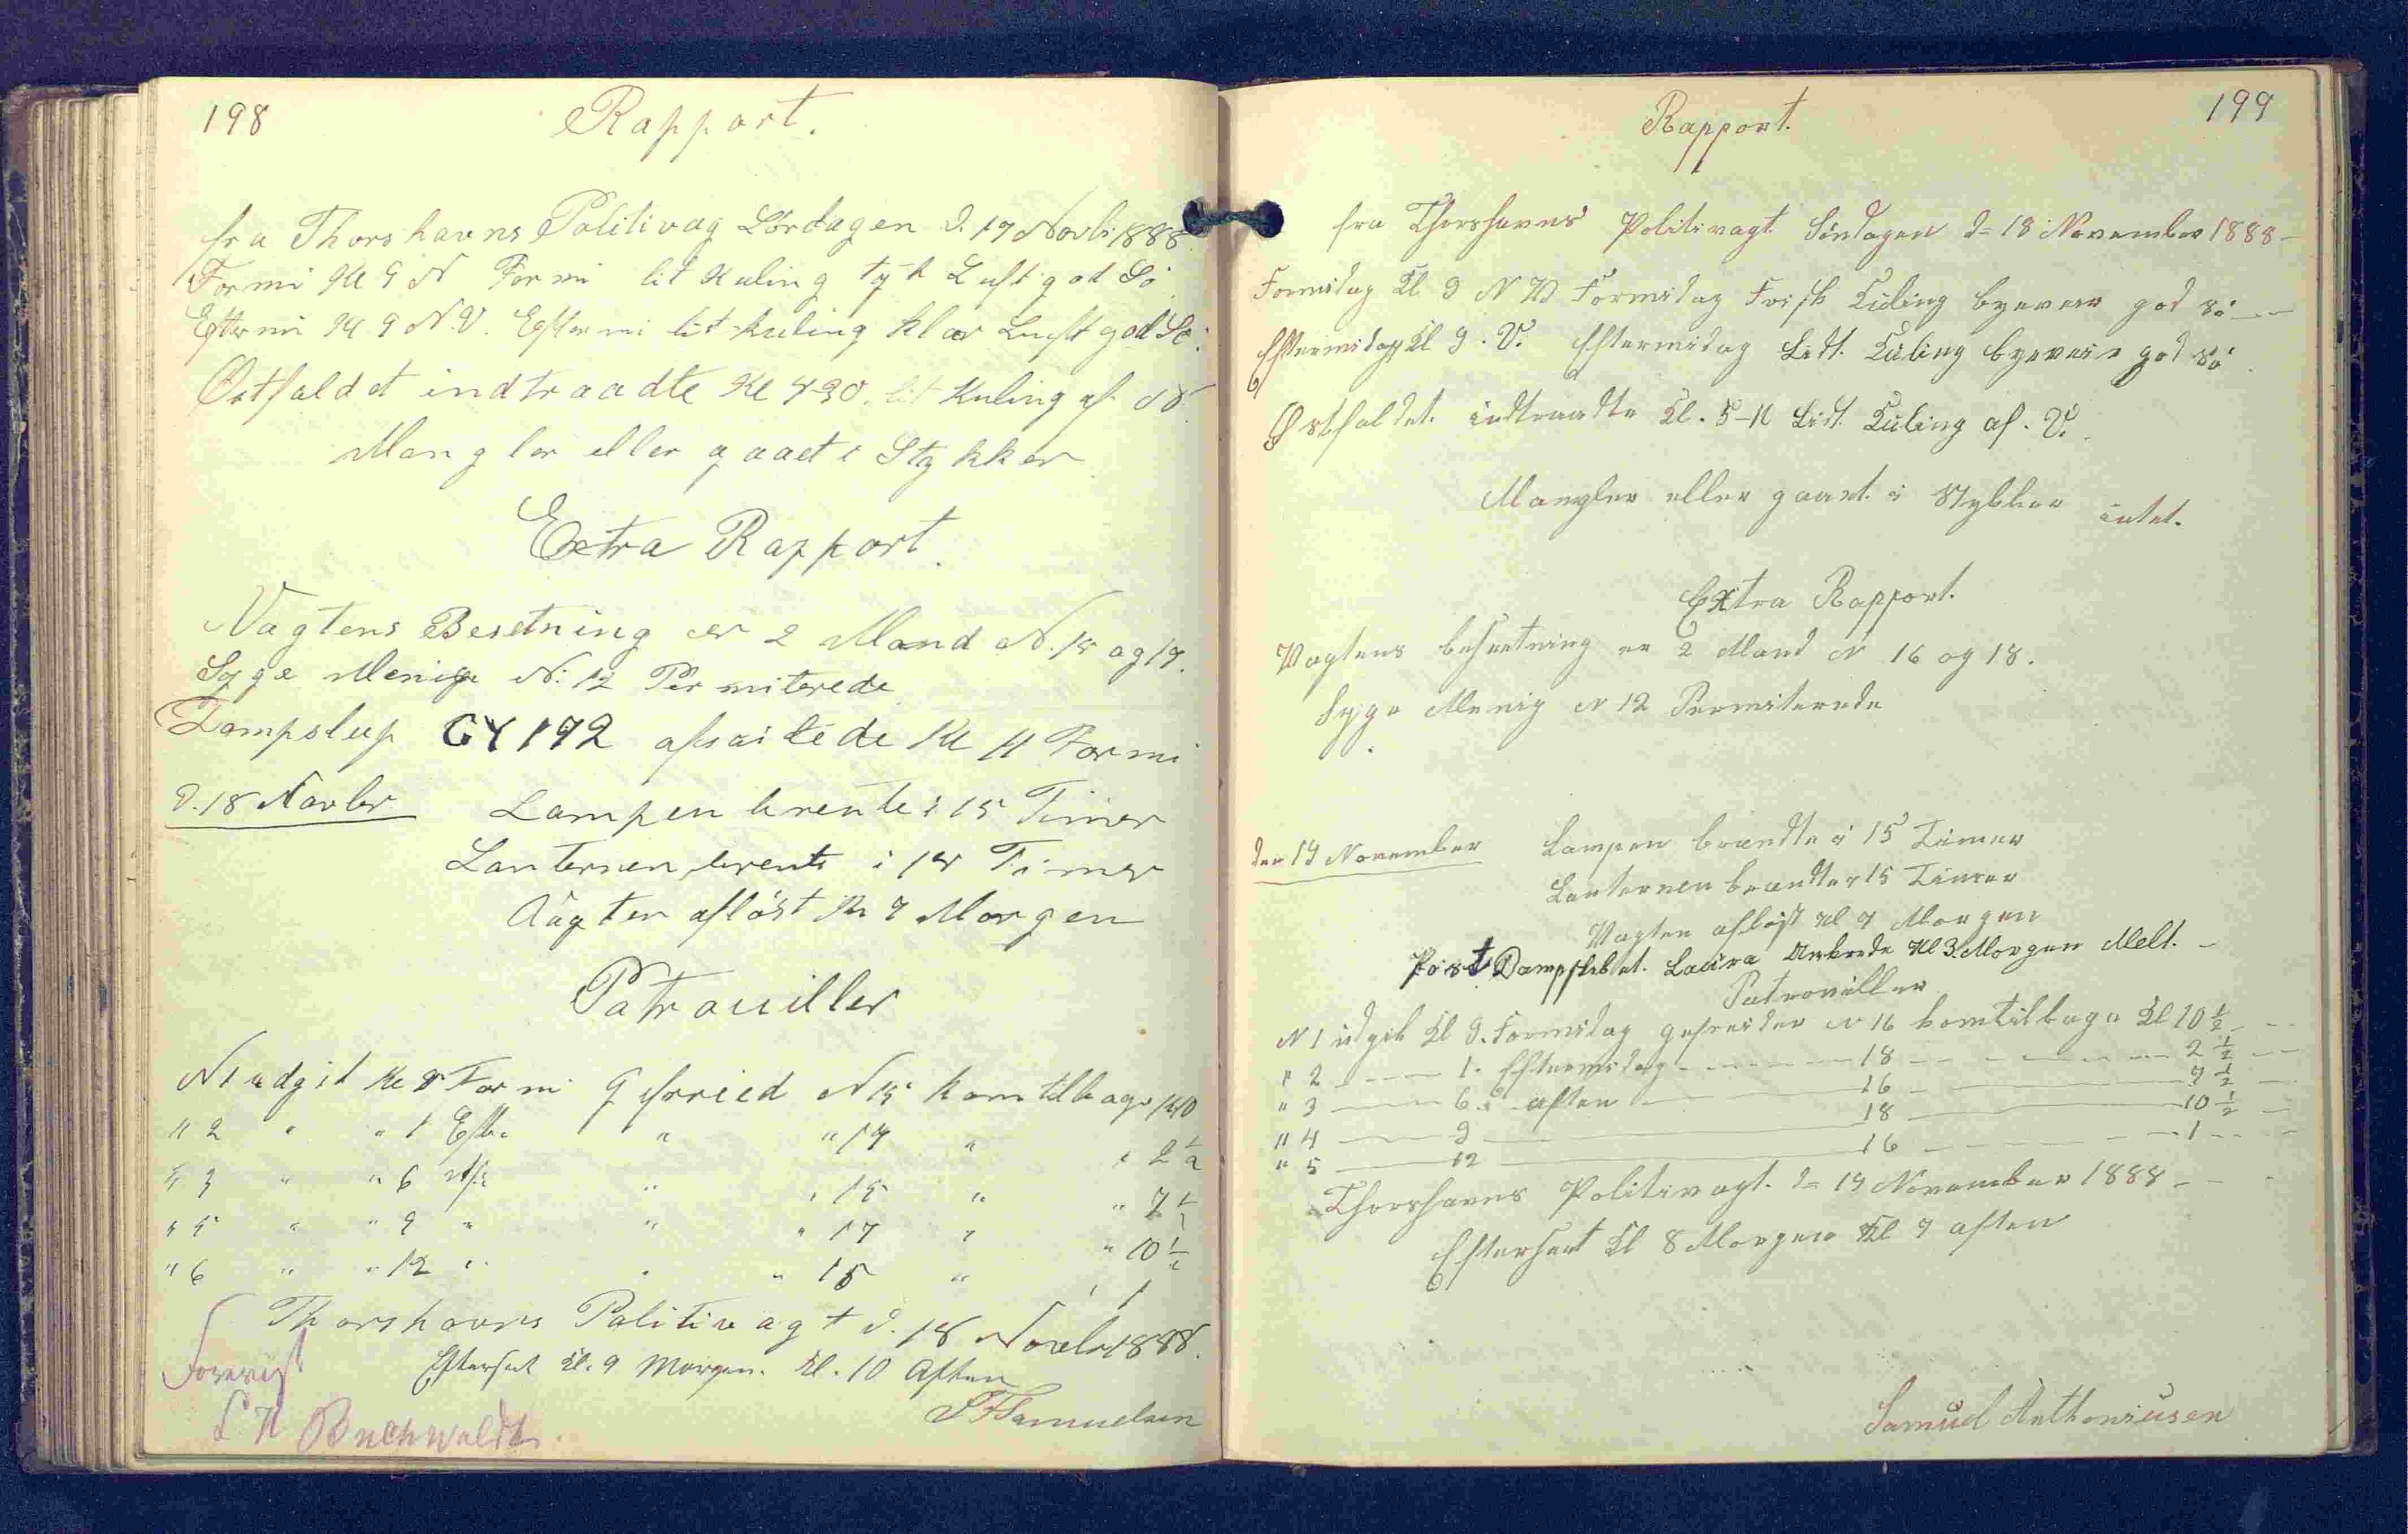 198
Rapport.
fra Thorshavns Politivag Lördagen d. 17 Novbr 1888.
Formi Kl 9 N Formi lit Kuling tyk Luft god Sö
Eftermi Kl 9 N.V. Eftermi lit kuling klar Luft god Sö.
Östfaldet indtraadte Kl 4-30. lit Kuling af NV
Mangler eller gaaet i Stykker
Extra Rapport.
Vagtens Besetning er 2 Mand N. 15 og 17.
Syge Menige N: 12 Permiterede
Dampslup GY 192 afsailede Kl 11 Formi
d. 18 Novbr Lampen brente i 15 Timer
Lanternen brente i 14 Timer
Vagten aflöst Kl 7 Morgen
Patrouiller
N 1 udgik Kl 8 Formi Gefreied N 15 kom tilbage Kl 10
" 2 " " 1 Efter " " 17 " " 2 1/2
" 3 " " 6 " " 15 " " 7 1/2
" 5 " " 9 " " " 17 " " 10 1/2
" 6 " " 12 " " " 15 " " 1
Thorshavns Politivagt d. 18 Novbr 1888.
Efterset Kl. 9 Morgen. Kl. 10 Aften
Forevist
Buchwaldt
Samuelsen
199
Rapport.
fra Thorshavns Politivagt Söndagen d= 18 November 1888-
Formidag Kl 9 N W Formidag Frisk Kuling byeveir god Sö
Eftermidag Kl 9. V. Eftermidag Lidt. Kuling byeveir god Sö
Østfaldet. indtraadte Kl. 5-10 Lidt Kuling af. V.
Mangler eller gaaet. i Stykker intet.
Extra Rapport.
Vagtens besætning er 2 Mand N 16 og 18.
Syge Menig N 12 Permiterede
den 19 November Lampen brændte i 15 Timer
Lanternen brændte i 15 Timer
Vagten aflöst Kl 7 Morgen
Post Dampskibet. Laura Ankrede Kl 3. Morgen Melt. -
Patrouiller
N 1 udgik Kl 9. Formidag gefreider N 16 komtilbage Kl 10 1/2
" 2 1. Eftermidag 18 2 1/2
" 3 6. aften 16 7 1/2
" 4 9 18 10 1/2
" 5 12 16 1
Thorshavns Politivagt. d= 19 November 1888 -
Efterseet Kl 8 Morgen Kl 7 aften
Samuel Anthoniusen